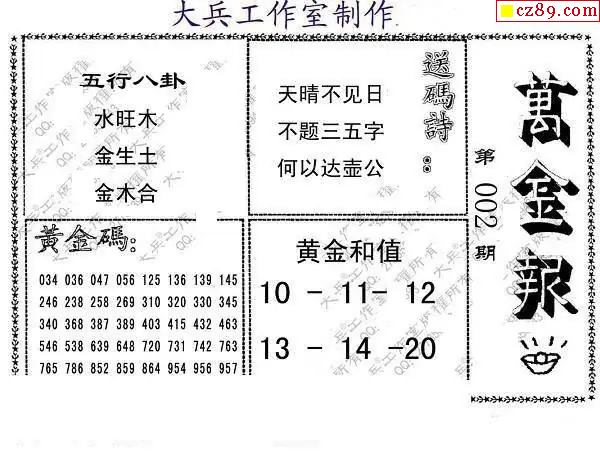 大兵工作室制作
cz89.com
五行八卦
水旺木
金生土
金木合
送碼詩：
天晴不见日
不题三五字
何以达壶公
萬金報
第002期
黃金碼：
034 036 047 056 125 136 139 145
246 238 258 269 310 320 330 345
340 368 387 389 403 415 432 463
546 538 639 648 720 731 742 763
765 786 852 859 864 954 956 957
黄金和值
10 - 11- 12
13 - 14 -20